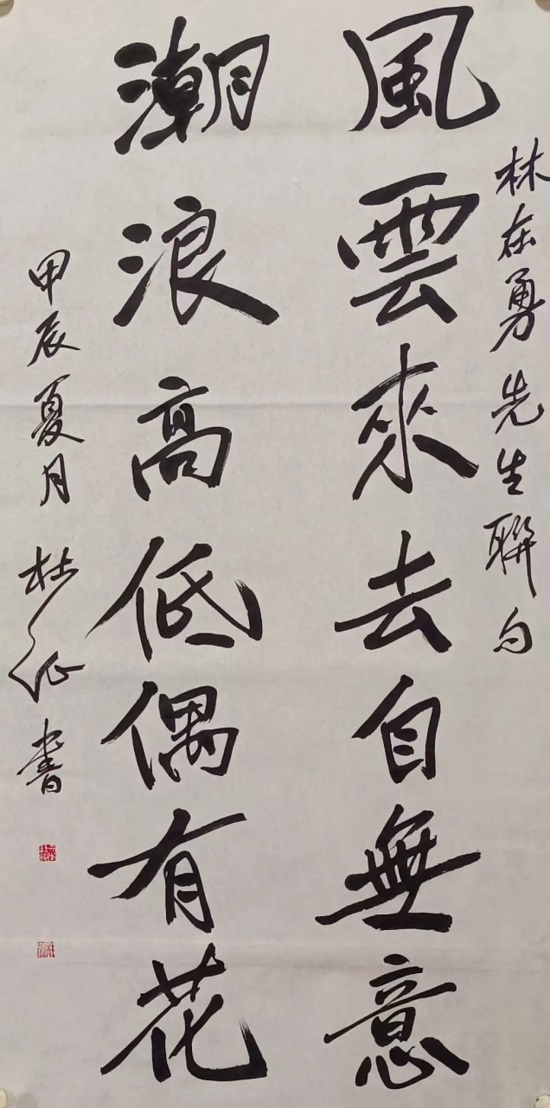 林在勇先生聯句
風雲來去自無意
潮浪高低偶有花
甲辰夏月 杜征書